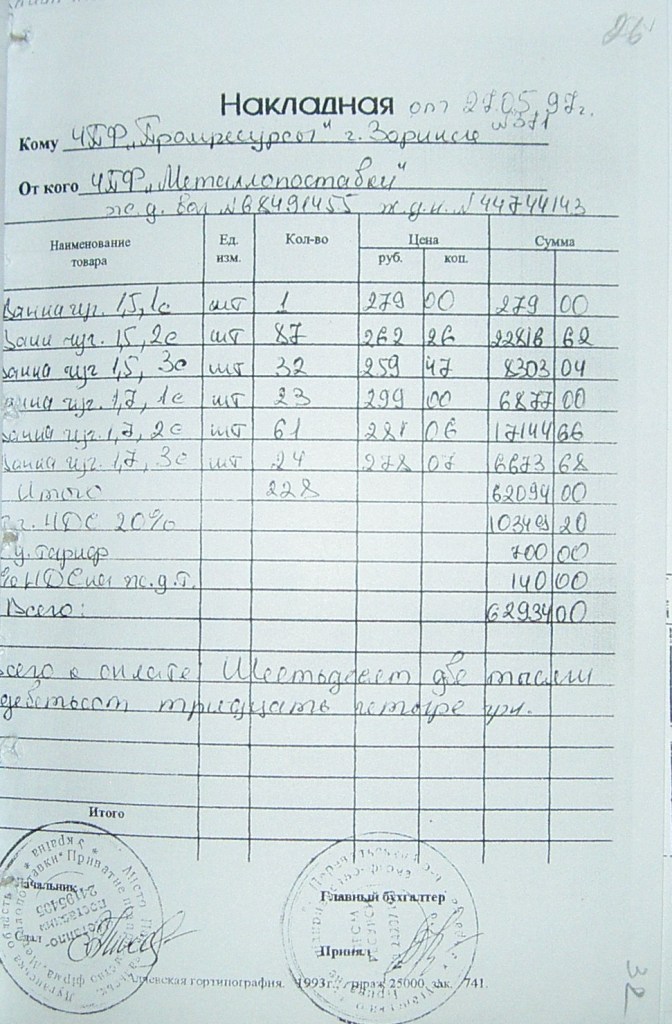 26
Накладная от 27.05.97г.
№371
Кому ЧПФ „Промресурсы" г. Зоринск
От кого ЧПФ „Металлопоставки"
ж.д. ваг №68491455 ж.д.н. №44744143
Наименование товара Ед. изм. Кол-во Цена Сумма
руб. коп.
Ванна чуг. 1,5, 1с шт 1 279 00 279 00
Ванн чуг. 1,5, 2с шт 87 262 26 22816 62
Ванна чуг 1,5, 3с шт 32 259 47 8303 04
анна чуг. 1,7, 1с шт 23 299 00 6877 00
анна чуг. 1,7, 2с шт 61 281 06 17144 66
Ванна чуг. 1,7, 3с шт 24 278 07 6673 68
Итого 228 62094 00
ч. НДС 20% 10349 20
д. тариф 700 00
НДС на ж.д.т. 140 00
Всего: 62934 00
сего к оплате Шестьдесят две тысячи
девятьсот тридцать четыре грн.
Итого
ачальник Главный бухгалтер
Сдал Принял
Алчевская гортипография. 1993г. тираж 25000 зак. 741.
32